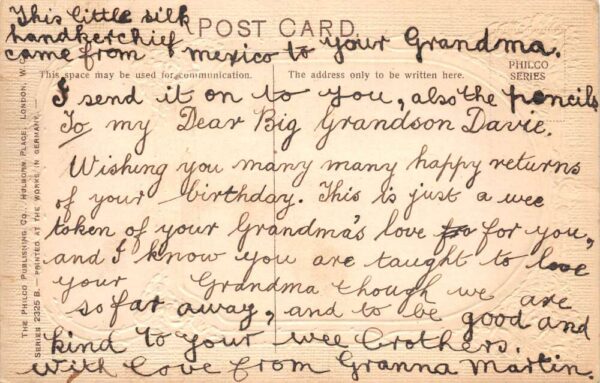 This little silk
POST CARD.
handkerchief
came from mexico to your Grandma.
PHILCO
SERIES
This space may be used for communication.
The address only to be written here.
I send it on to you, also the pencils
To my Dear Big Grandson Davie.
Wishing you many many happy returns
of your birthday. This is just a wee
token of your Grandma's love for you,
and I know you are taught to love
your Grandma though we are
so far away, and to be good and
kind to your wee brothers.
With love from Granna Martin.
THE PHILCO PUBLISHING CO., HOLBORN PLACE, LONDON, W.C.
SERIES 2325 B. — PRINTED AT THE WORKS IN GERMANY. —